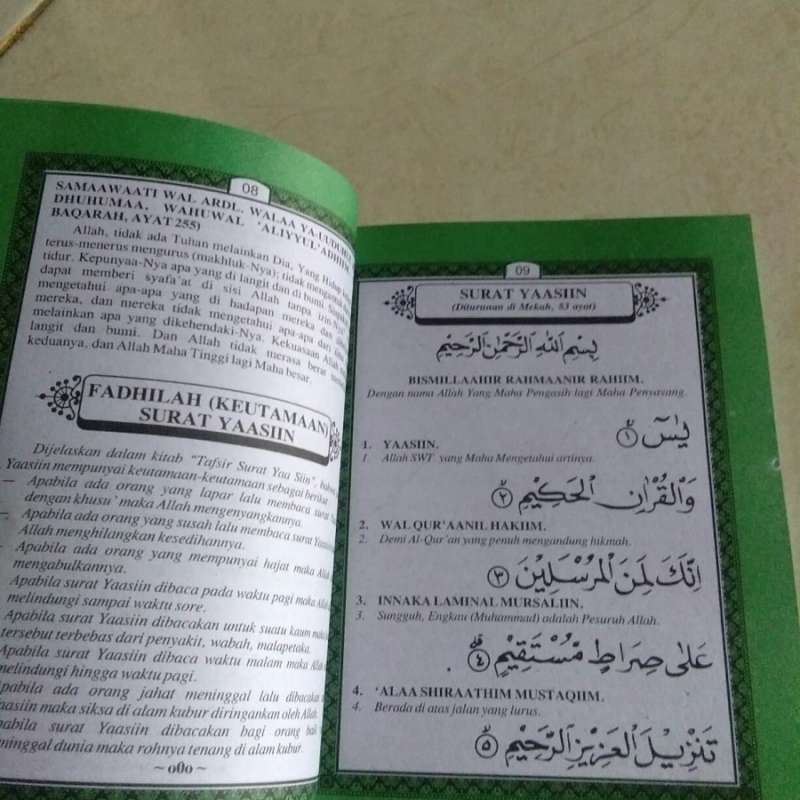 08
SAMAAWAATI WAL ARDL. WALAA YA-UUDUHU
DHUHUMAA. WAHUWAL 'ALIYYUL'ADHIIM
BAQARAH, AYAT 255)
Allah, tidak ada Tuhan melainkan Dia, Yang Hidup
terus-menerus mengurus (makhluk-Nya); tidak mengantuk
tidur. Kepunyaa-Nya apa yang di langit dan di bumi. Siapa
dapat memberi syafa'at di sisi Allah tanpa izin-Nya
mengetahui apa-apa yang di hadapan mereka dan
mereka, dan mereka tidak mengetahui apa-apa dari
melainkan apa yang dikehendaki-Nya. Kekuasaan Allah
langit dan bumi. Dan Allah tidak merasa berat
keduanya, dan Allah Maha Tinggi lagi Maha besar.
FADHILAH (KEUTAMAAN)
SURAT YAASIIN
Dijelaskan dalam kitab "Tafsir Surat Yaa Siin",
Yaasiin mempunyai keutamaan-keutamaan sebagai berikut
— Apabila ada orang yang lapar lalu membaca surat
dengan khusu' maka Allah mengenyangkannya.
— Apabila ada orang yang susah lalu membaca surat Yaasiin
Allah menghilangkan kesedihannya.
— Apabila ada orang yang mempunyai hajat maka
mengabulkannya.
Apabila surat Yaasiin dibaca pada waktu pagi maka
melindungi sampai waktu sore.
Apabila surat Yaasiin dibacakan untuk suatu kaum maka
tersebut terbebas dari penyakit, wabah, malapetaka.
Apabila surat Yaasiin dibaca waktu malam maka Allah
melindungi hingga waktu pagi.
Apabila ada orang jahat meninggal lalu dibacakan
Yaasiin maka siksa di alam kubur diringankan oleh Allah.
Apabila surat Yaasiin dibacakan bagi orang
meninggal dunia maka rohnya tenang di alam kubur.
~ o0o ~
09
SURAT YAASIIN
(Diturunan di Mekah, 83 ayat)
بِسْمِ اللهِ الرَّحْمٰنِ الرَّحِيْمِ
BISMILLAAHIR RAHMAANIR RAHIIM.
Dengan nama Allah Yang Maha Pengasih lagi Maha Penyayang.
يٰسۤ ۝١
1. YAASIIN.
1. Allah SWT yang Maha Mengetahui artinya.
وَالْقُرْاٰنِ الْحَكِيْمِ ۝٢
2. WAL QUR'AANIL HAKIIM.
2. Demi Al-Qur'an yang penuh mengandung hikmah.
اِنَّكَ لَمِنَ الْمُرْسَلِيْنَ ۝٣
3. INNAKA LAMINAL MURSALIIN.
3. Sungguh, Engkau (Muhammad) adalah Pesuruh Allah.
عَلٰى صِرَاطٍ مُّسْتَقِيْمٍ ۝٤
4. 'ALAA SHIRAATHIM MUSTAQIIM.
4. Berada di atas jalan yang lurus.
تَنْزِيْلَ الْعَزِيْزِ الرَّحِيْمِ ۝٥